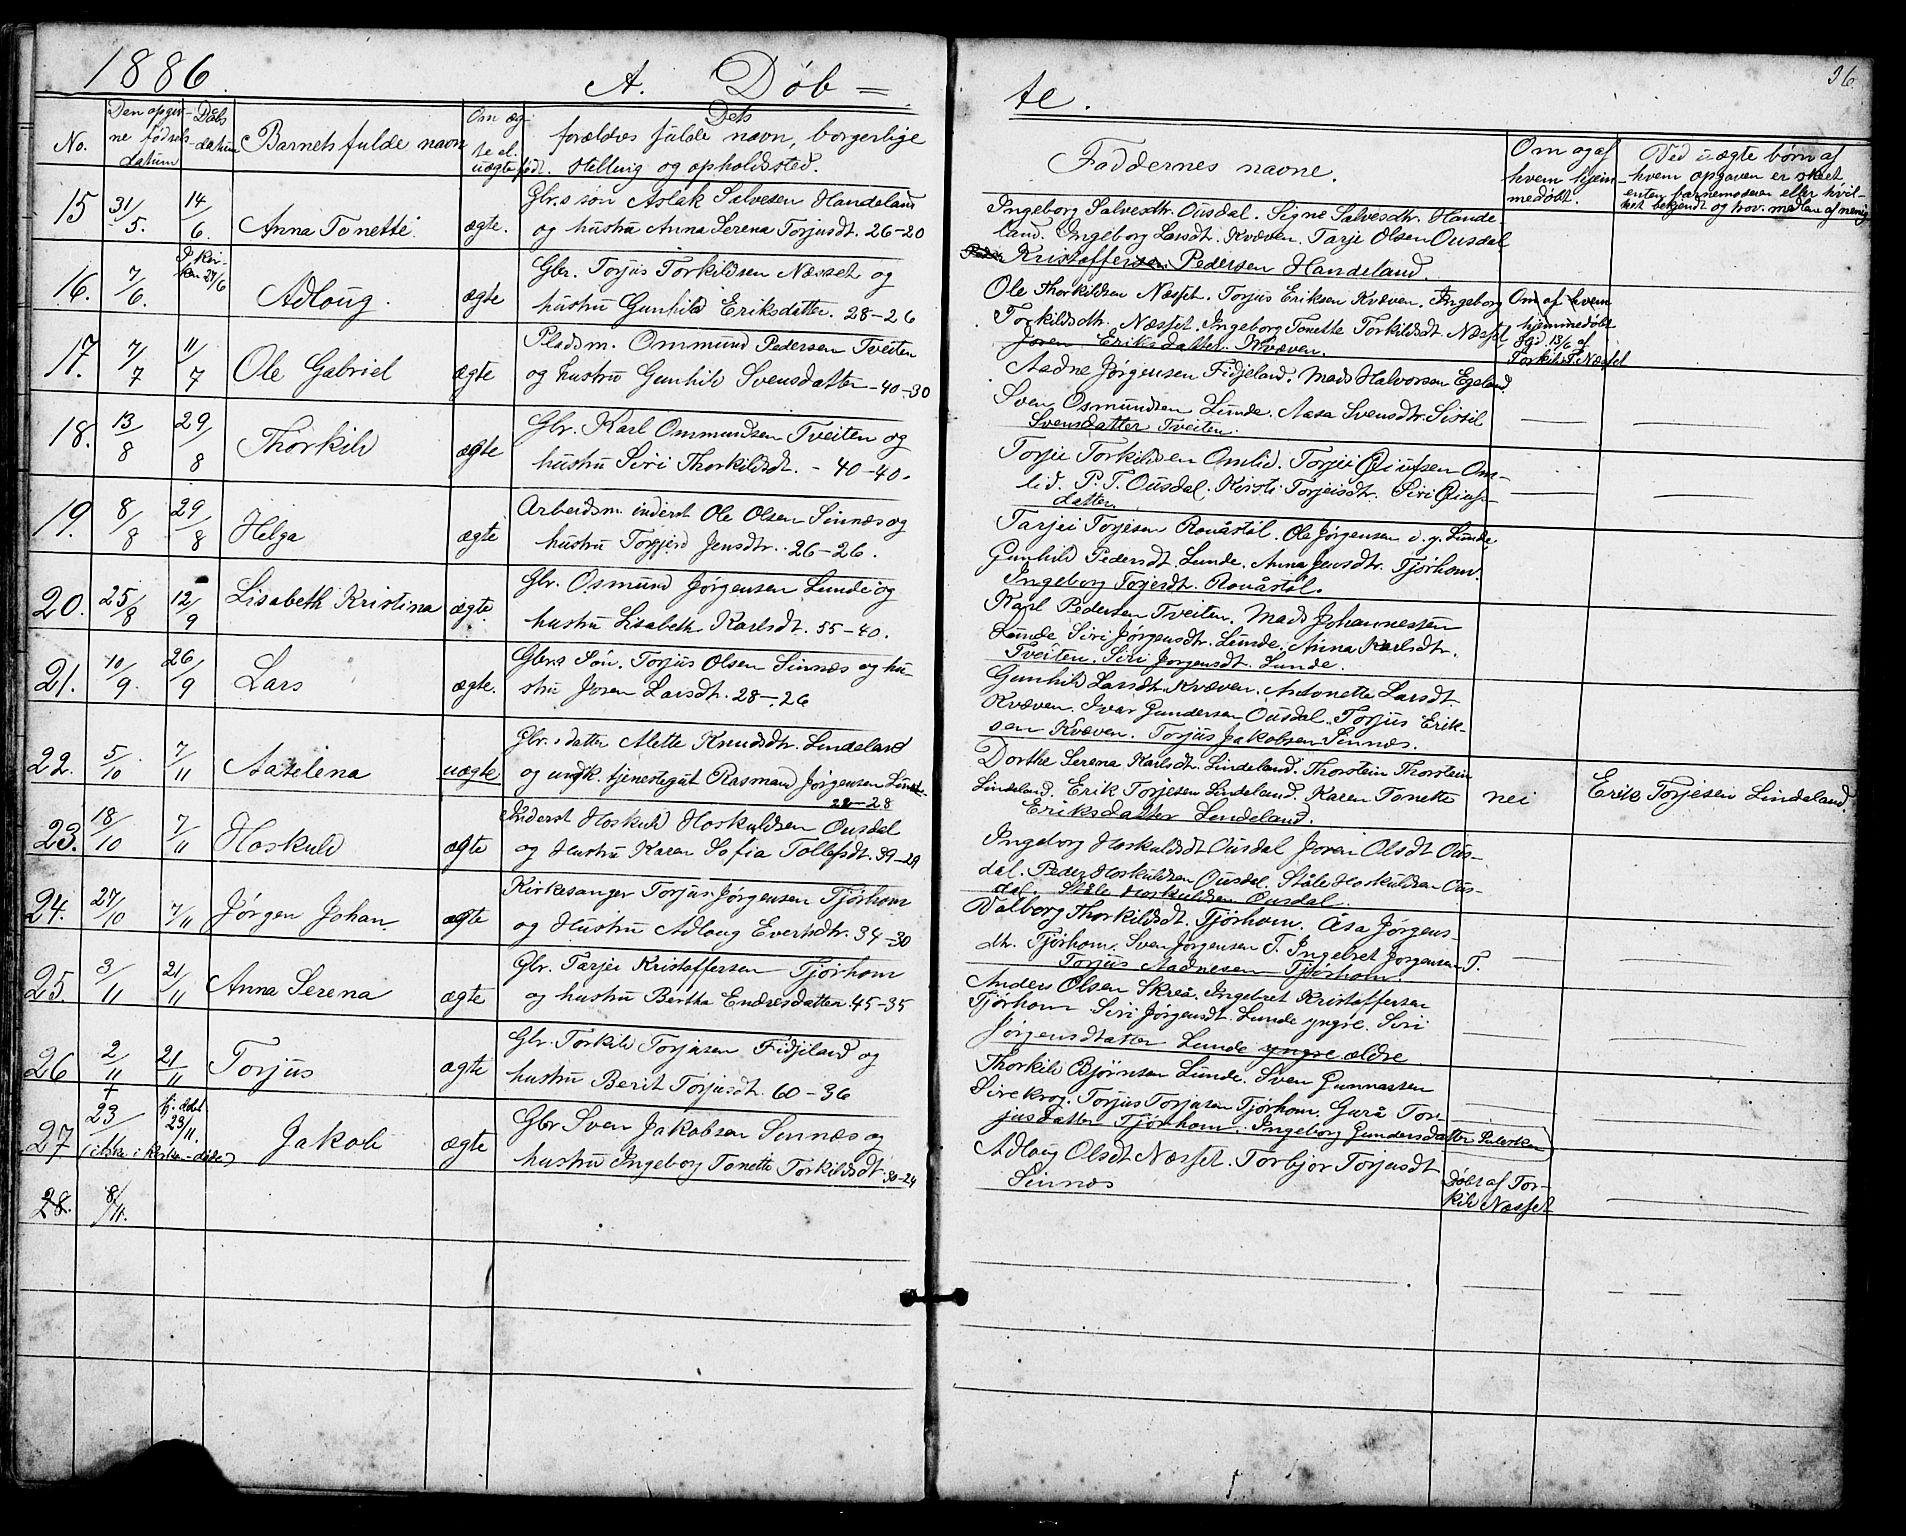 1886. A. Døb=
No.
Den opgiv-
ne fødsels
datum
Døbs
datum
Barnets fulde navn
Om æg-
te el.
uægte født.
Dets
forældres fulde navn, borgerlige
stilling og opholdssted.
15 31/5. 14/6. Anna Tonette. ægte.
Gbr.s søn Aslak Salvesen Handeland
og hustru Anna Serena Torjusdt. 26-20
16. 7/6. I kir-
ken 27/6
Adloug. ægte
Gbr. Torjus Torkildsen Næsset og
hustru Gunhild Eriksdatter. 28-26
17. 7/7 11/7 Ole Gabriel ægte
Pladsm. Ommund Pedersen Tveiten
og hustru Gunhild Svensdatter-40-30
18. 13/8 29/8 Thorkild ægte
Gbr. Karl Ommundsen Tveiten og
hustru Siri Thorkildsdt. - 40-40.
19. 8/8 29/8 Helga ægte
Arbeidsm. inderst Ole Olsen Sinnes og
hustru Torgjerd Jensdtr. 26-26.
20. 25/8 12/9 Lisabeth Kristina ægte.
Gbr. Osmund Jørgensen Lunde og
hustru Lisabeth Karlsdt. 55-40.
21. 10/9. 26/9 Lars ægte.
Gbr.s Søn. Torjus Olsen Sinnes og hu-
stru Joren Larsdt. 28-26
22. 5/10 7/11 Aaselena uægte
Gbr.s datter Alette Knudsdtr. Lindeland
og ungk. tjenestegut Rasmand Jørgensen
28-28
23. 18/10 7/11 Hoskuld ægte
Inderst Hoskuld Hoskuldsen Ousdal
og Hustru Karen Sofia Tollefsdt. 39-29
24. 27/10 7/11 Jørgen Johan ægte
Kirkesanger Torjus Jørgensen Tjørhom
og Hustru Adloug Evertsdtr. 34-30
25. 3/11 21/11 Anna Serena ægte
Gbr. Tarjei Kristoffersen Tjørhom
og hustru Bertha Endresdatter. 45-35
26 2/11 21/11 Torjus ægte
Gbr. Torkild Torjusen Fidjeland og
hustru Berit Torjusdt. 60-36
27 + 23/ hj. døbt
23/11.
(ikke i kirken - døde) Jakob ægte
Gbr Sven Jakobsen Sinnes og
hustru Ingeborg Tonette Torkildsdt. 30-24
28. 8/11.
te. 36
Faddernes navne.
Om og af
hvem hjem-
medøbt.
Ved uægte børn af
hvem opgaven er skeet
enten barnemoderen eller hvil-
ket bekjendt og hov. medlem af menig
Ingeborg Salvesdtr. Ousdal. Signe Salvesdtr. Hande
land. Ingeborg Larsdt. Kvæven. Tarje Olsen Ousdal
Peder Kristoffersen Pedersen Handeland.
Ole Thorkildsen Næsset. Torjus Eriksen Kvæven. Ingeborg
Torkildsdtr. Næsset. Ingeborg Tonette Torkildsdt Næsset
Joren Eriksdatter. Kvæven.
Om af hvem
hjemmedøbt
13/6 af
Torkild T. Næsset
Aadne Jørgensen Fidjeland. Mads Halvorsen Egeland.
Sven Osmundsen Lunde. Aasa Svensdtr. Sissil
Svensdatter Tveiten.
Torjei Torkildsen Omlid. Torjei Om-
lid. P. T. Ousdal. Kirsti Torjeisdtr. Siri
datter.
Tarjei Torjesen Rouåstøl. Ole Jørgensen d. y. Lunde
Gunhild Pedersdt. Lunde. Anna Jensdtr. Tjørhom.
Ingeborg Torjesdt. Rouåstøl.
Karl Pedersen Tveiten. Mads Johannessen
Lunde. Siri Jørgensdtr. Lunde. Anna Karlsdtr.
Tveiten. Siri Jørgensdt. Lunde.
Gunhild Larsdt. Kvæven. Antonette Larsdt
Kvæven. Ivar Gundersen Ousdal. Torjus Erik-
sen Kvæven. Torjus Jakobsen Sinnes.
Dorthe Serena Karlsdt. Lindeland. Thorstein Thorstein
Lindeland. Erik Torjesen Lindeland. Karen Tonette
Eriksdatter Lindeland.
nei
Erik Torjesen Lindeland.
Ingeborg Hoskuldsdt Ousdal Joren Olsdt Ous-
dal. Peder Hoskuldsen Ousdal. Ståle Hoskuldsen Ous-
dal. Ståle Hoskuldsen Ousdal.
Valborg Thorkildsdt. Tjørhom. Åsa Jørgens-
dtr. Tjørhom. Sven Jørgensen T. Ingebret Jørgensen T.
Torjus Aadnesen Tjørhom.
Anders Olsen Skreå. Ingebret Kristoffersen
Tjørhom Siri Jørgensdt. Lunde yngre. Siri
Jørgensdatter Lunde yngre ældre
Thorkild Bjørnsen Lunde. Sven Gunnassen
Sirekrog. Torjus Torjusen Tjørhom. Gurå Tor-
jusdatter Tjørhom. Ingeborg Gundersdatter
Adloug Olsdt Næsset. Torbjør Torjusdt
Sinnes
Døbt af Tor-
kild Næsset